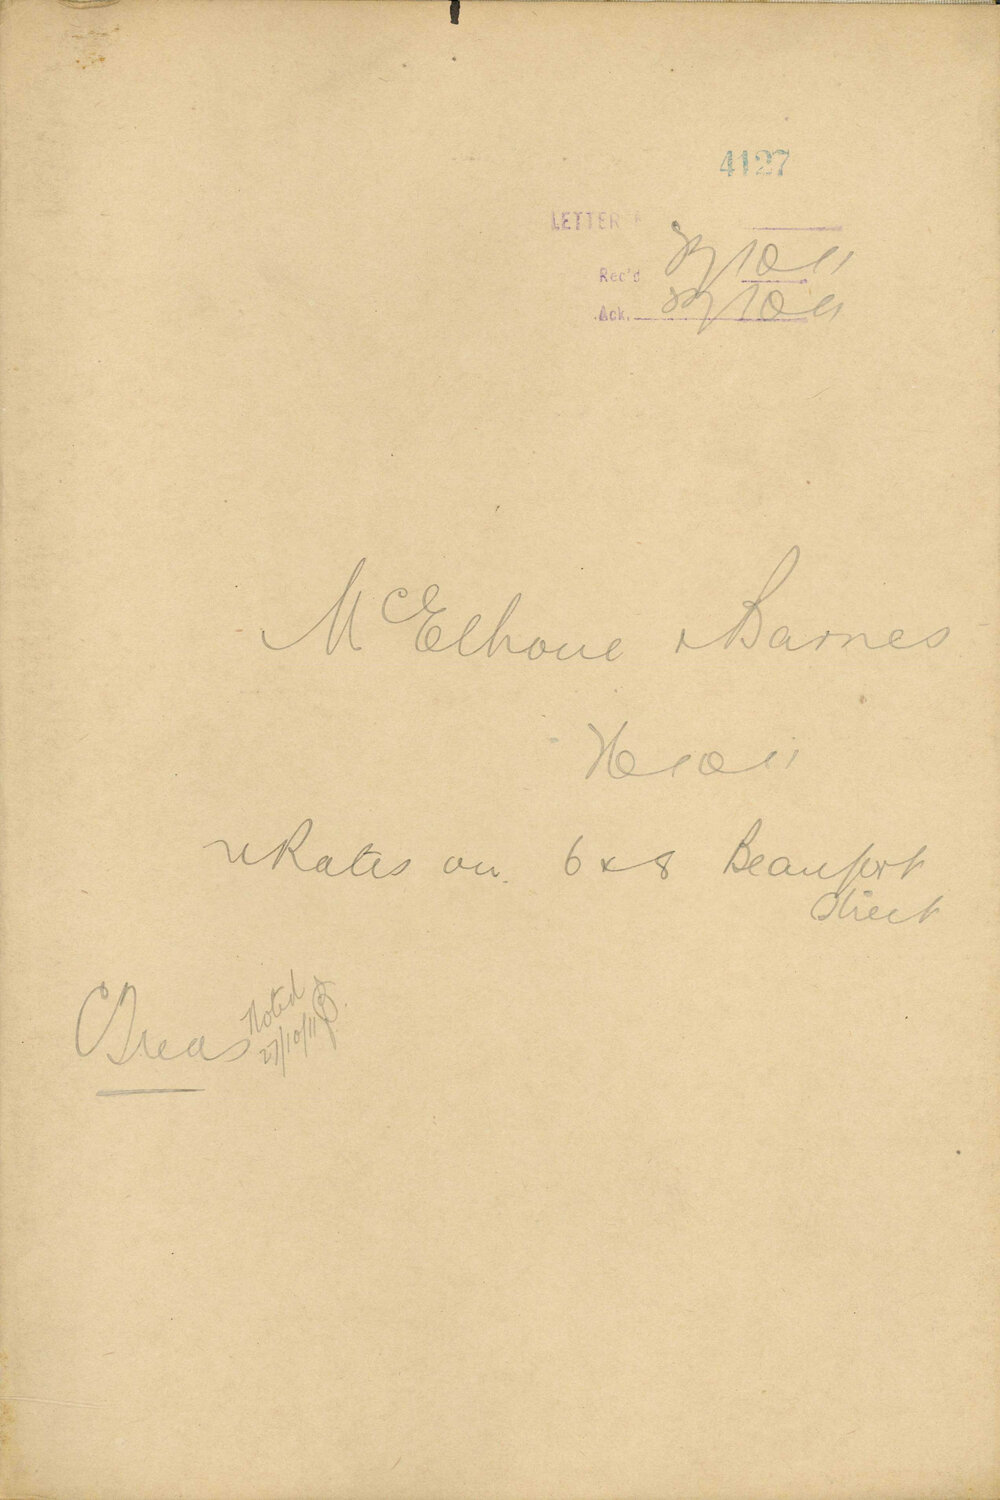 4127
LETTER
Rec'd 27/10/11
Ack. 27/10/11
McElhone & Barnes
/10/11
re Rates on 6 & 8 Beaufort
Street
C Treas
Noted
27/10/11